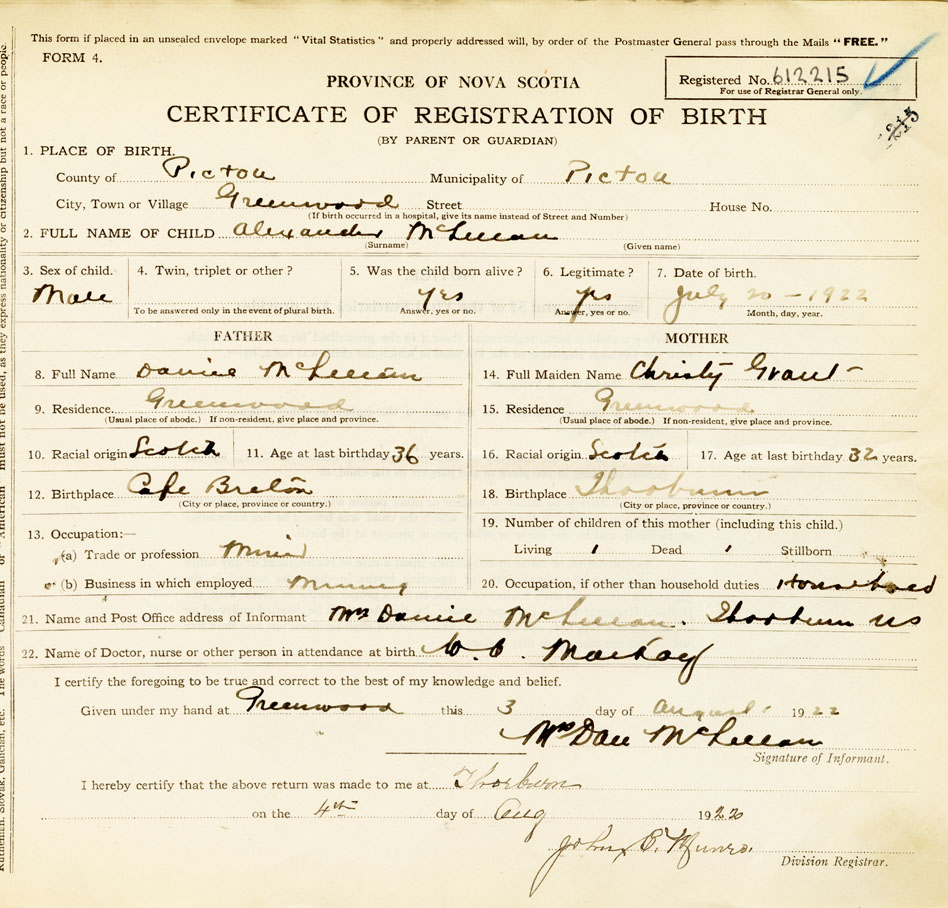 This form if placed in an unsealed envelope marked "Vital Statistics" and properly addressed will, by order of the Postmaster General pass through the Mails "FREE."
FORM 4.
PROVINCE OF NOVA SCOTIA
Registered No. 612215
For use of Registrar General only.
CERTIFICATE OF REGISTRATION OF BIRTH
215
(BY PARENT OR GUARDIAN)
1. PLACE OF BIRTH.
County of Pictou Municipality of Pictou
City, Town or Village Greenwood Street House No.
(If birth occurred in a hospital, give its name instead of Street and Number)
2. FULL NAME OF CHILD Alexander McLellan
(Surname) (Given name)
3. Sex of child. 4. Twin, triplet or other? 5. Was the child born alive? 6. Legitimate? 7. Date of birth.
Male yes yes July 20 - 1922
To be answered only in the event of plural birth. Answer, yes or no. Answer, yes or no. Month, day, year.
FATHER MOTHER
8. Full Name McLellan 14. Full Maiden Name Christy Grant
9. Residence Greenwood 15. Residence Greenwood
(Usual place of abode.) If non-resident, give place and province. (Usual place of abode.) If non-resident, give place and province.
10. Racial origin Scotch 11. Age at last birthday 36 years. 16. Racial origin Scotch 17. Age at last birthday 32 years.
12. Birthplace Cape Breton 18. Birthplace Thorburn
(City or place, province or country.) (City or place, province or country.)
13. Occupation:— 19. Number of children of this mother (including this child.)
(a) Trade or profession Living 1 Dead 1 Stillborn
(b) Business in which employed Mining 20. Occupation, if other than household duties
21. Name and Post Office address of Informant Mrs McLellan. Thorburn NS
22. Name of Doctor, nurse or other person in attendance at birth MacKay
I certify the foregoing to be true and correct to the best of my knowledge and belief.
Given under my hand at Greenwood this 3 day of August 1922
Mrs Dan McLellan
Signature of Informant.
I hereby certify that the above return was made to me at Thorburn
on the 4th day of Aug 1922
John Munro.
Division Registrar.